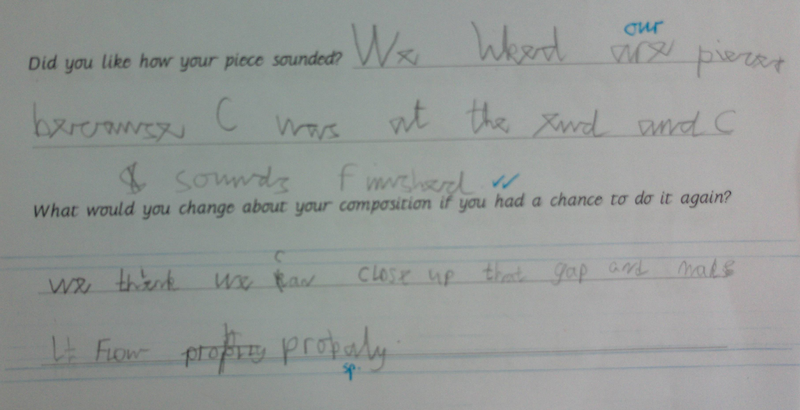 our
Did you like how your piece sounded? We liked are piece
because C was at the end and C
sounds finished
What would you change about your composition if you had a chance to do it again?
we think we can close up that gap and make
it Flow proprty propaly.
sp.